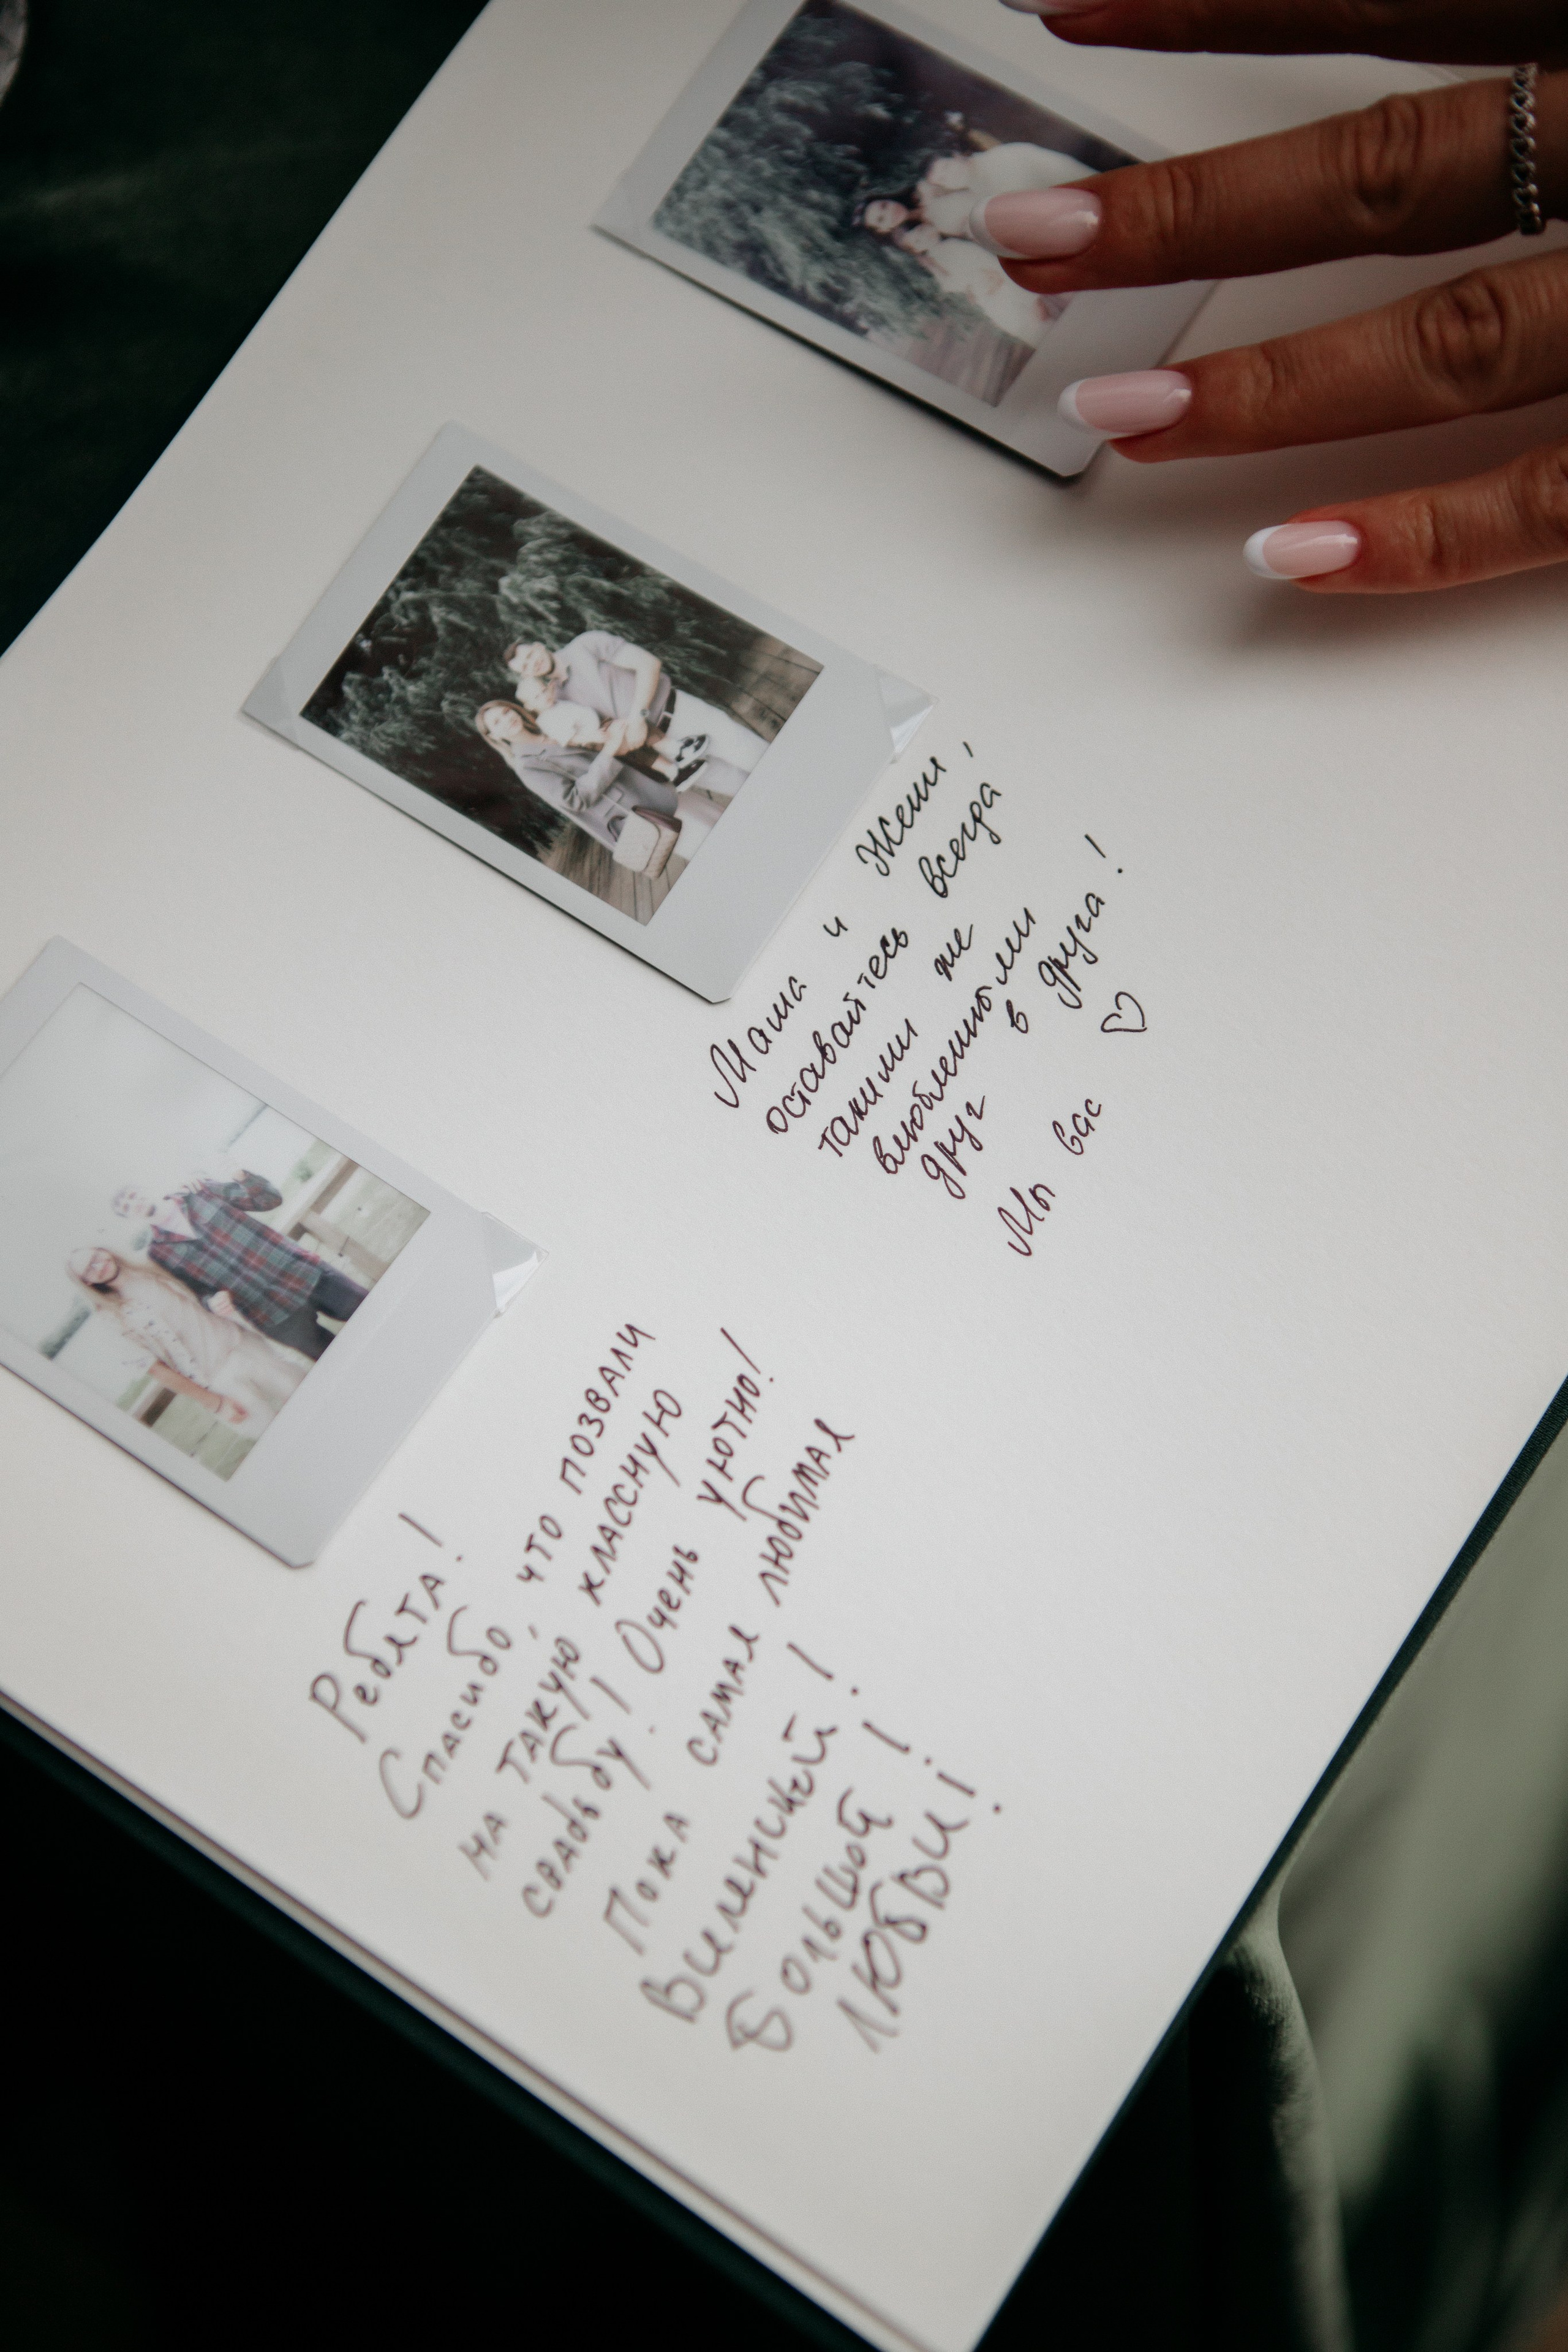 Маша и Женя,
оставайтесь всегда
такими же
влюбленными
друг в друга!
Мы вас ♡
Ребята!
Спасибо, что позвали
на такую классную
свадьбу! Очень уютно!
Пока самая любимая
Виленский!
Большой
любви!